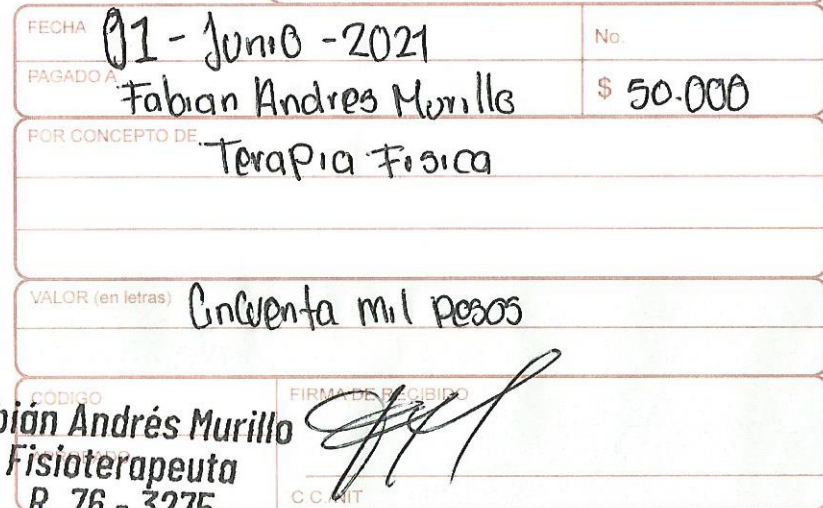 FECHA 01 - Junio - 2021 No.
PAGADO A Fabian Andres Murillo $ 50.000
POR CONCEPTO DE Terapia Fisica
VALOR (en letras) Cincuenta mil pesos
CÓDIGO FIRMA DE RECIBIDO
bián Andrés Murillo
Fisioterapeuta
R. 76 - 3275
C.C./NIT